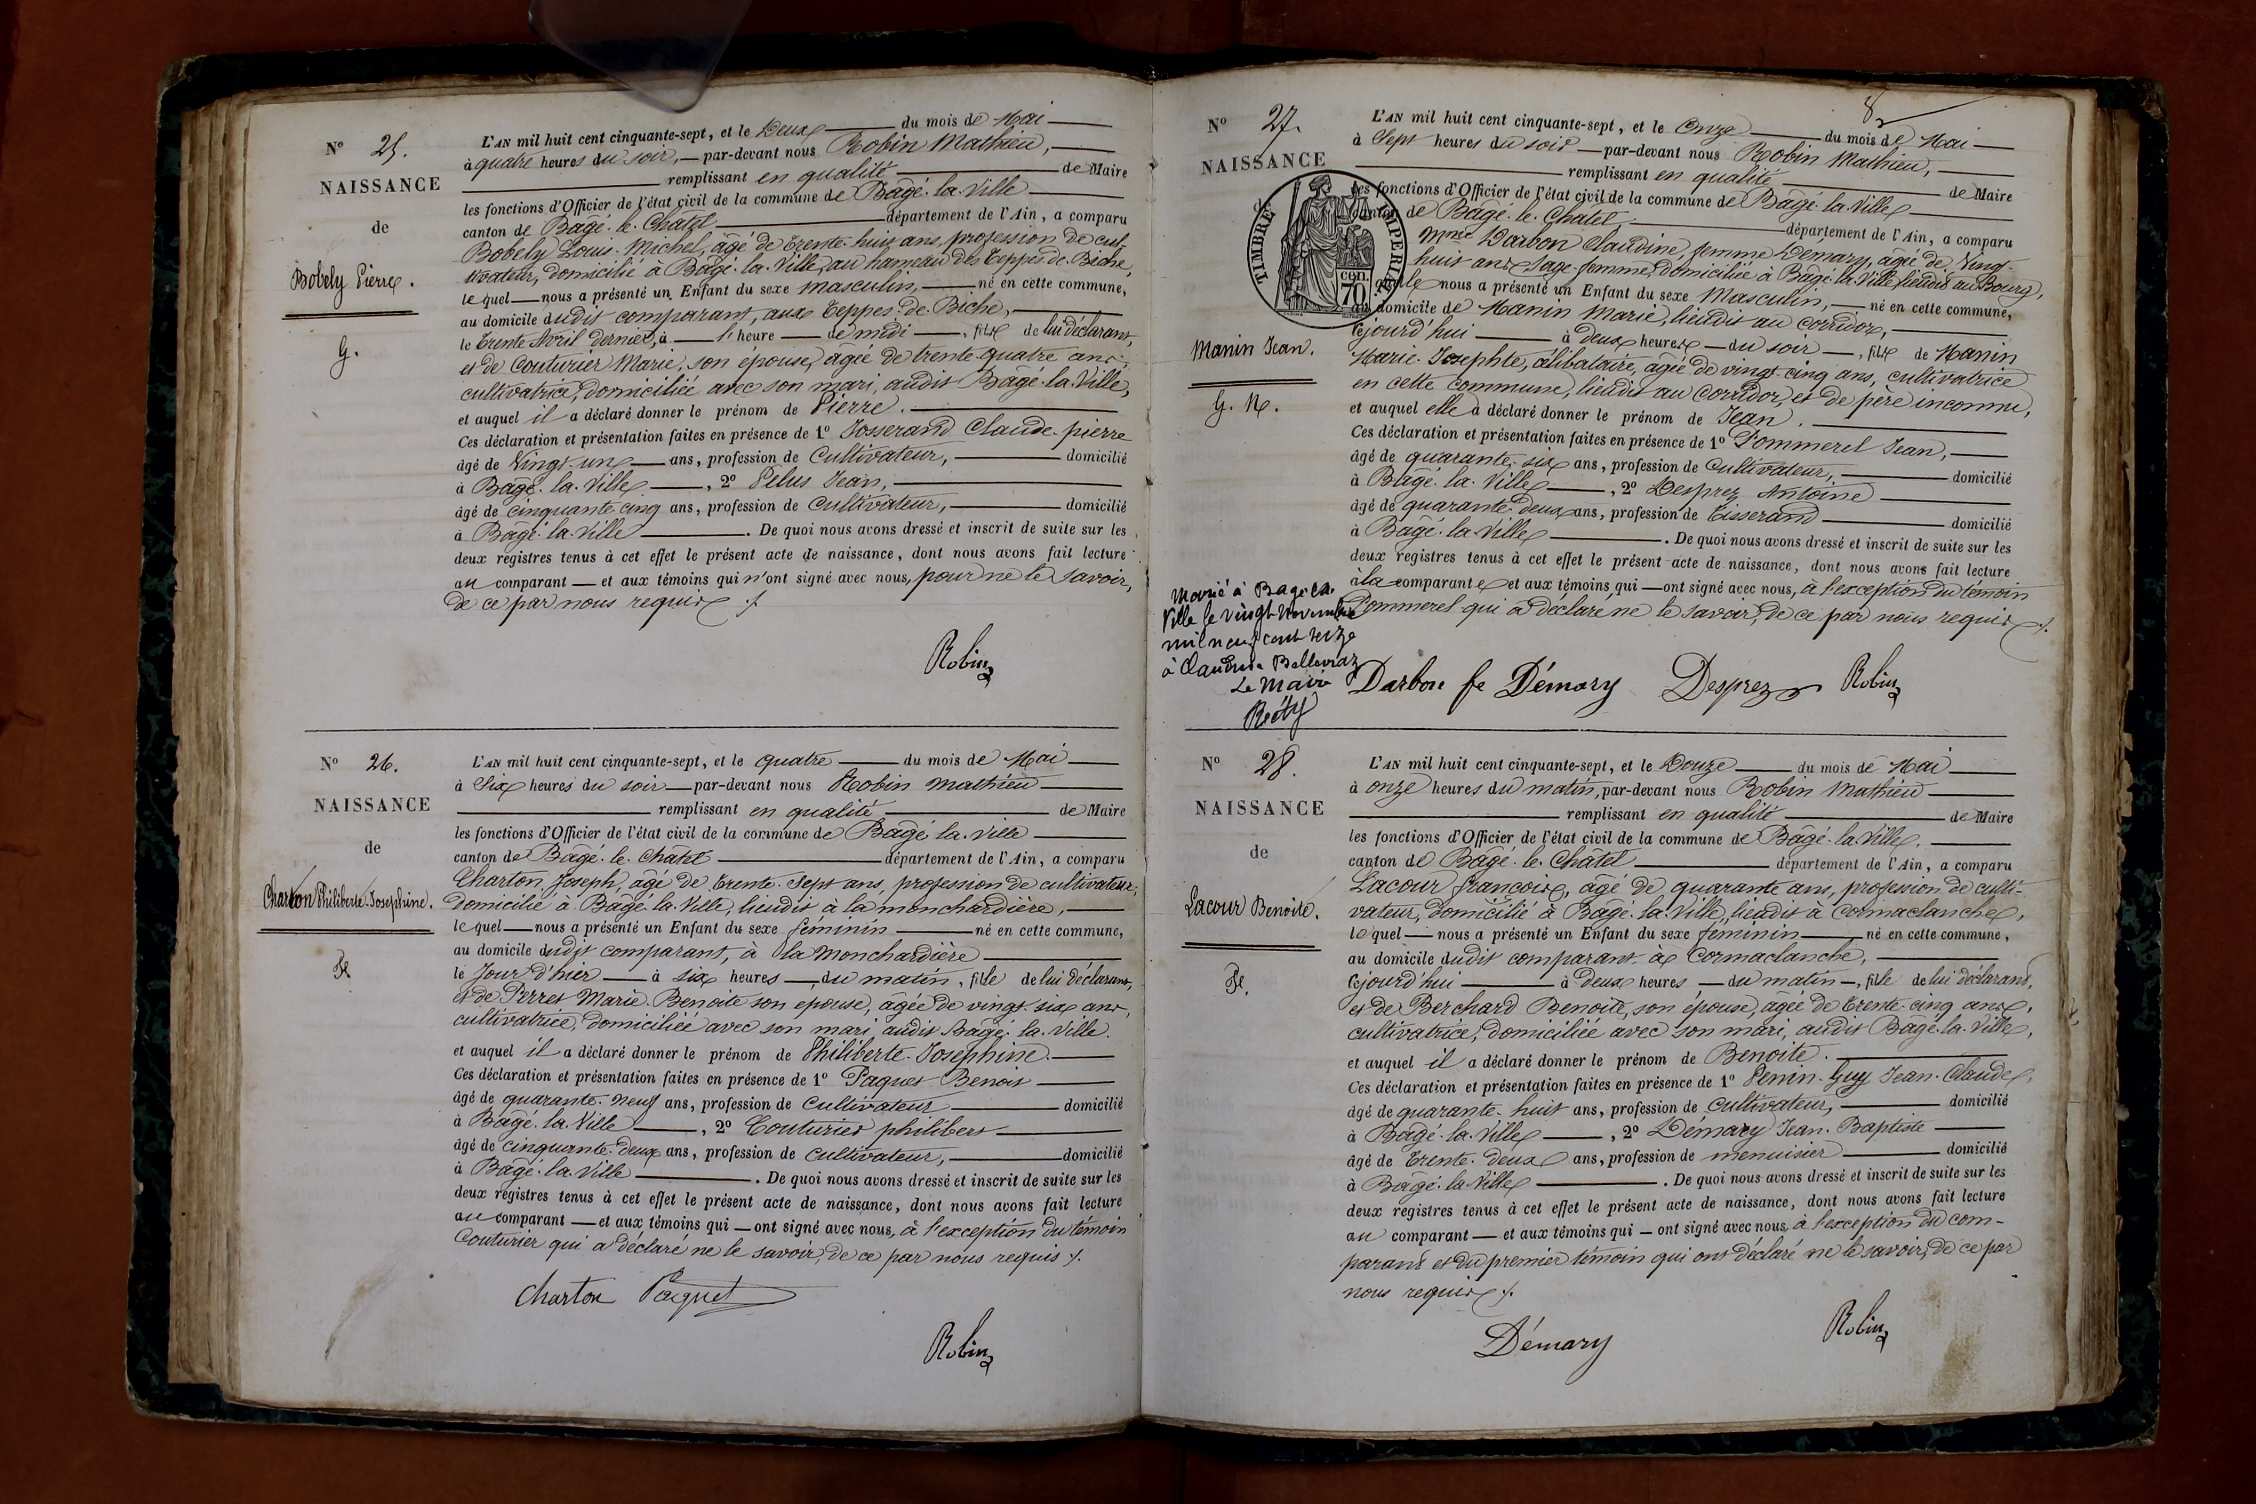 N° 25.
NAISSANCE
de
Bobely Pierre.
G.
L'AN mil huit cent cinquante-sept, et le Deux du mois de Mai
à quatre heures du soir, par-devant nous Robin Mathieu,
remplissant en qualité de Maire
les fonctions d'Officier de l'état civil de la commune de Bâgé-la-Ville
canton de Bâgé-le-Châtel département de l'Ain, a comparu
Bobely Louis-Michel, âgé de trente-huit ans, profession de cul-
tivateur, domicilié à Bâgé-la-Ville, au hameau des Teppes-de-Biche,
lequel nous a présenté un Enfant du sexe masculin, né en cette commune,
au domicile dudit comparant, aux Teppes-de-Biche,
le trente Avril dernier, à l'heure de midi, fils de lui déclarant,
et de Couturier Marie, son épouse, âgée de trente-quatre ans,
cultivatrice, domiciliée avec son mari, audit Bâgé-la-Ville,
et auquel il a déclaré donner le prénom de Pierre.
Ces déclaration et présentation faites en présence de 1° Josserand Claude-pierre
âgé de Vingt-un ans, profession de Cultivateur, domicilié
à Bâgé-la-Ville, 2° Pelus Jean,
âgé de cinquante-cinq ans, profession de Cultivateur, domicilié
à Bâgé-la-Ville. De quoi nous avons dressé et inscrit de suite sur les
deux registres tenus à cet effet le présent acte de naissance, dont nous avons fait lecture
au comparant et aux témoins qui n'ont signé avec nous, pour ne le savoir,
de ce par nous requis ./.
Robin
N° 26.
NAISSANCE
de
Charton Philiberte-Josephine.
F.
L'AN mil huit cent cinquante-sept, et le quatre du mois de Mai
à Six heures du soir par-devant nous Robin Mathieu
remplissant en qualité de Maire
les fonctions d'Officier de l'état civil de la commune de Bâgé-la-Ville
canton de Bâgé-le-Châtel département de l'Ain, a comparu
Charton Joseph, âgé de trente-sept ans, profession de cultivateur,
domicilié à Bâgé-la-Ville, lieudit à la monchardière,
lequel nous a présenté un Enfant du sexe féminin né en cette commune,
au domicile dudit comparant, à la Monchardière
le Jour d'hier à six heures du matin, fille de lui déclarant,
et de Perret Marie-Benoite son épouse, âgée de vingt-six ans,
cultivatrice, domiciliée avec son mari, audit Bâgé-la-Ville.
et auquel il a déclaré donner le prénom de Philiberte-Josephine.
Ces déclaration et présentation faites en présence de 1° Paquet Benoit
âgé de quarante-neuf ans, profession de Cultivateur domicilié
à Bâgé-la-Ville, 2° Couturier philibert
âgé de cinquante-deux ans, profession de Cultivateur, domicilié
à Bâgé-la-Ville. De quoi nous avons dressé et inscrit de suite sur les
deux registres tenus à cet effet le présent acte de naissance, dont nous avons fait lecture
au comparant et aux témoins qui ont signé avec nous, à l'exception du témoin
Couturier qui a déclaré ne le savoir, de ce par nous requis ./.
Charton Paquet
Robin
8
N° 27.
NAISSANCE
de
TIMBRE IMPERIAL
70 cen.
Manin Jean.
G. N.
L'AN mil huit cent cinquante-sept, et le Onze du mois de Mai
à Sept heures du soir par-devant nous Robin Mathieu,
remplissant en qualité de Maire
les fonctions d'Officier de l'état civil de la commune de Bâgé-la-Ville
canton de Bâgé-le-Chatel département de l'Ain, a comparu
Mme Darbon Claudine, femme Démary, âgée de Vingt-
huit ans, Sage-femme, domiciliée à Bâgé-la-Ville lieudit au Bourg,
laquelle nous a présenté un Enfant du sexe Masculin, né en cette commune,
au domicile de Manin Marie, lieudit au Corridor,
cejourd'hui à deux heures du soir, fils de Manin
Marie-Josephte, célibataire, âgée de vingt-cinq ans, cultivatrice
en cette commune, lieudit au Corridor, et de père inconnu,
et auquel elle a déclaré donner le prénom de Jean.
Ces déclaration et présentation faites en présence de 1° Pommerel Jean,
âgé de quarante-six ans, profession de Cultivateur, domicilié
à Bâgé-la-Ville, 2° Desprez Antoine
âgé de quarante-deux ans, profession de Tisserand domicilié
à Bâgé-la-Ville. De quoi nous avons dressé et inscrit de suite sur les
deux registres tenus à cet effet le présent acte de naissance, dont nous avons fait lecture
à la comparante et aux témoins, qui ont signé avec nous, à l'exception du témoin
Pommerel qui a déclaré ne le savoir, de ce par nous requis ./.
Marié à Bagé la
Ville le vingt novembre
mil neuf cent treize
à Claudine Bellevraz
Le Maire
Réty
Darbon fe Démary Desprez Robin
N° 28.
NAISSANCE
de
Lacour Benoite.
F.
L'AN mil huit cent cinquante-sept, et le Douze du mois de Mai
à onze heures du matin, par-devant nous Robin Mathieu
remplissant en qualité de Maire
les fonctions d'Officier de l'état civil de la commune de Bâgé-la-Ville,
canton de Bâgé-le-Châtel département de l'Ain, a comparu
Lacour françois, âgé de quarante ans, profession de culti-
vateur, domicilié à Bâgé-la-Ville, lieudit à Cormaclanche,
lequel nous a présenté un Enfant du sexe féminin né en cette commune,
au domicile dudit comparant, à Cormaclanche,
cejourd'hui à deux heures du matin, fille de lui déclarant,
et de Berchard Benoite, son épouse, âgée de trente-cinq ans,
cultivatrice, domiciliée avec son mari, audit Bâgé-la-Ville,
et auquel il a déclaré donner le prénom de Benoite.
Ces déclaration et présentation faites en présence de 1° Penin-Guy Jean-Claude,
âgé de quarante-huit ans, profession de Cultivateur, domicilié
à Bâgé-la-Ville, 2° Démary Jean-Baptiste
âgé de trente-deux ans, profession de menuisier domicilié
à Bâgé-la-Ville. De quoi nous avons dressé et inscrit de suite sur les
deux registres tenus à cet effet le présent acte de naissance, dont nous avons fait lecture
au comparant et aux témoins qui ont signé avec nous, à l'exception du com-
parant et du premier témoin qui ont déclaré ne le savoir, de ce par
nous requis ./.
Démary
Robin